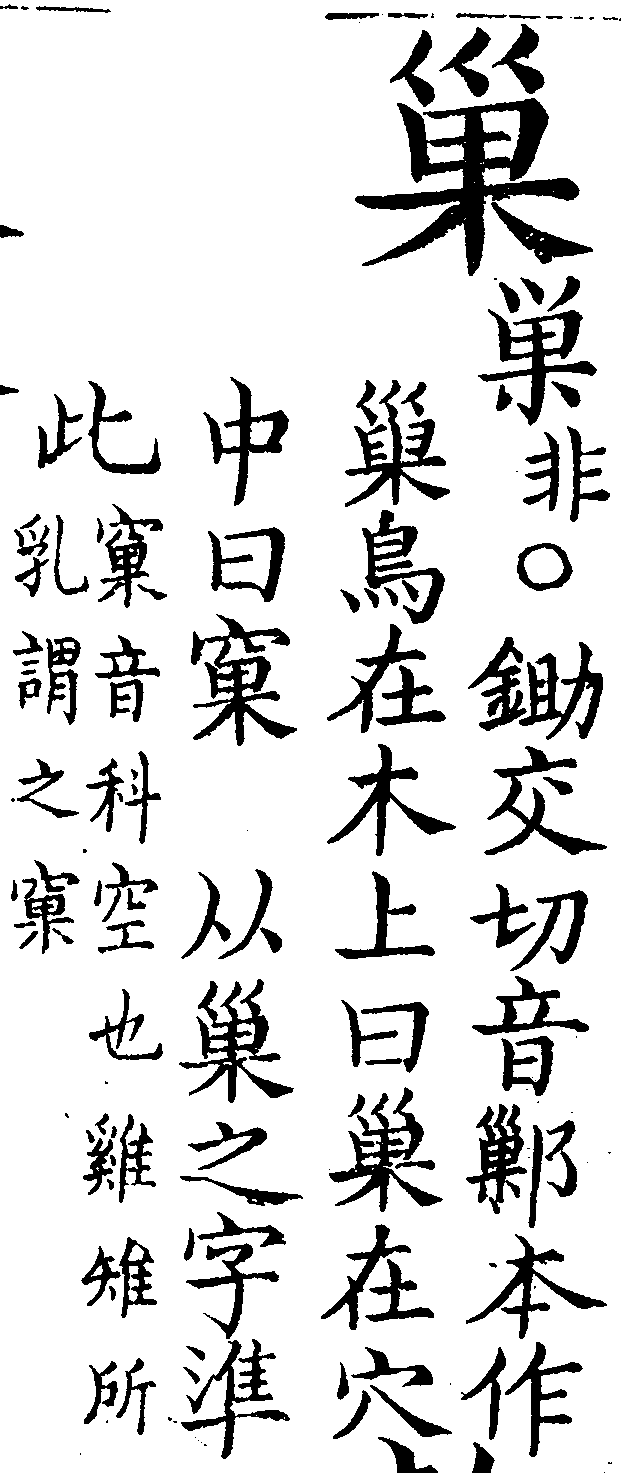 巢巣非○鋤交切音鄛本作
巢鳥在木上曰巢在穴
中曰窠　从巢之字準
此窠音科空也雞雉所
乳謂之窠